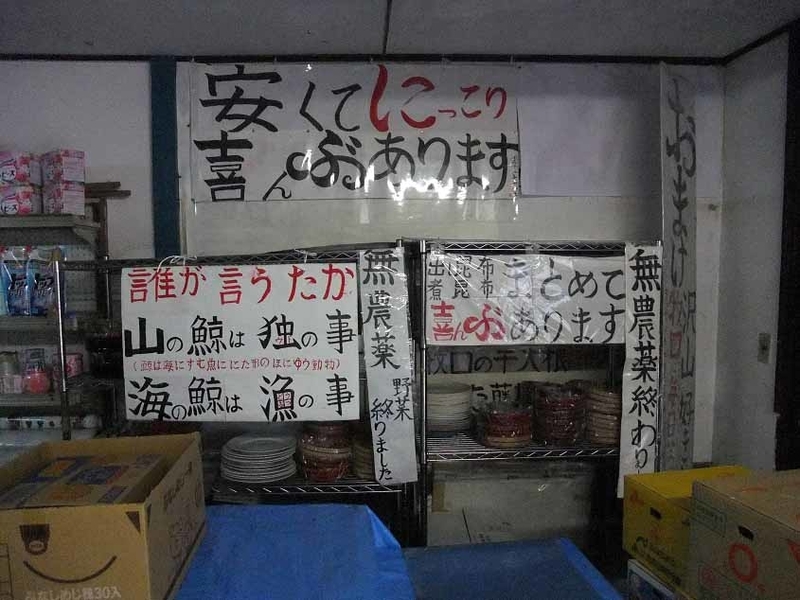 安くてにっこり
喜んぶあります
誰が言うたか
山の鯨は独の事
(鯨は海にすむ魚ににた形のほにゆう動物)
海の鯨は漁の事
無農薬
野菜
終りました
出昆布
煮昆布
まとめて
喜んぶあります
無農薬終わり
おまけ
みなしめじ種30入